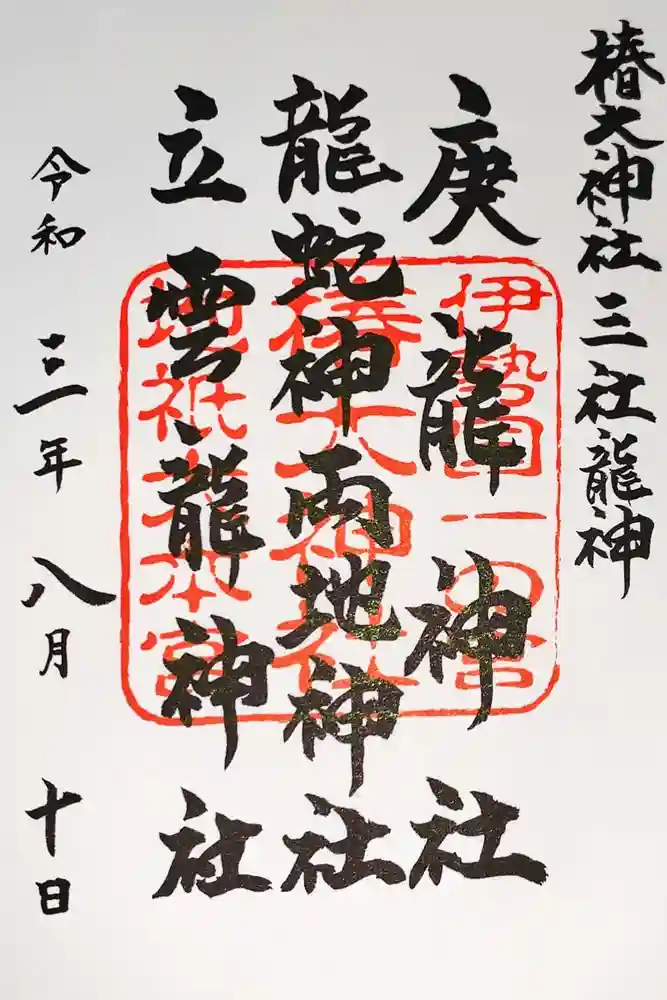 椿大神社 三社龍神
庚龍神社
龍蛇神両地神社
立雲龍神社
令和三年八月十日
伊勢国一の宮
椿大神社
地祇大本宮